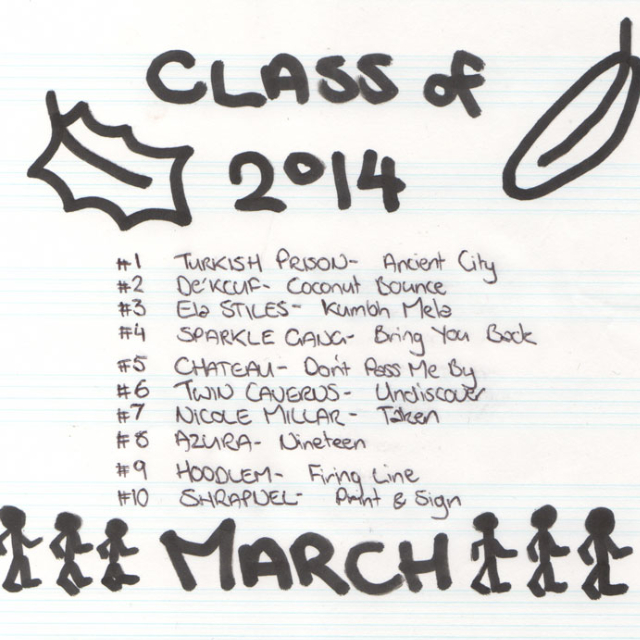 CLASS of
2014
#1 TURKISH PRISON- Ancient City
#2 De'KCUF- Coconut Bounce
#3 Ela STILES- Kumbh Mela
#4 SPARKLE GANG- Bring You Back
#5 CHATEAU- Don't Pass Me By
#6 TWIN CAVERNS- Undiscover
#7 NICOLE MILLAR- Taken
#8 AZURA- Nineteen
#9 HOODLEM- Firing Line
#10 SHRAPNEL- Print & Sign
MARCH